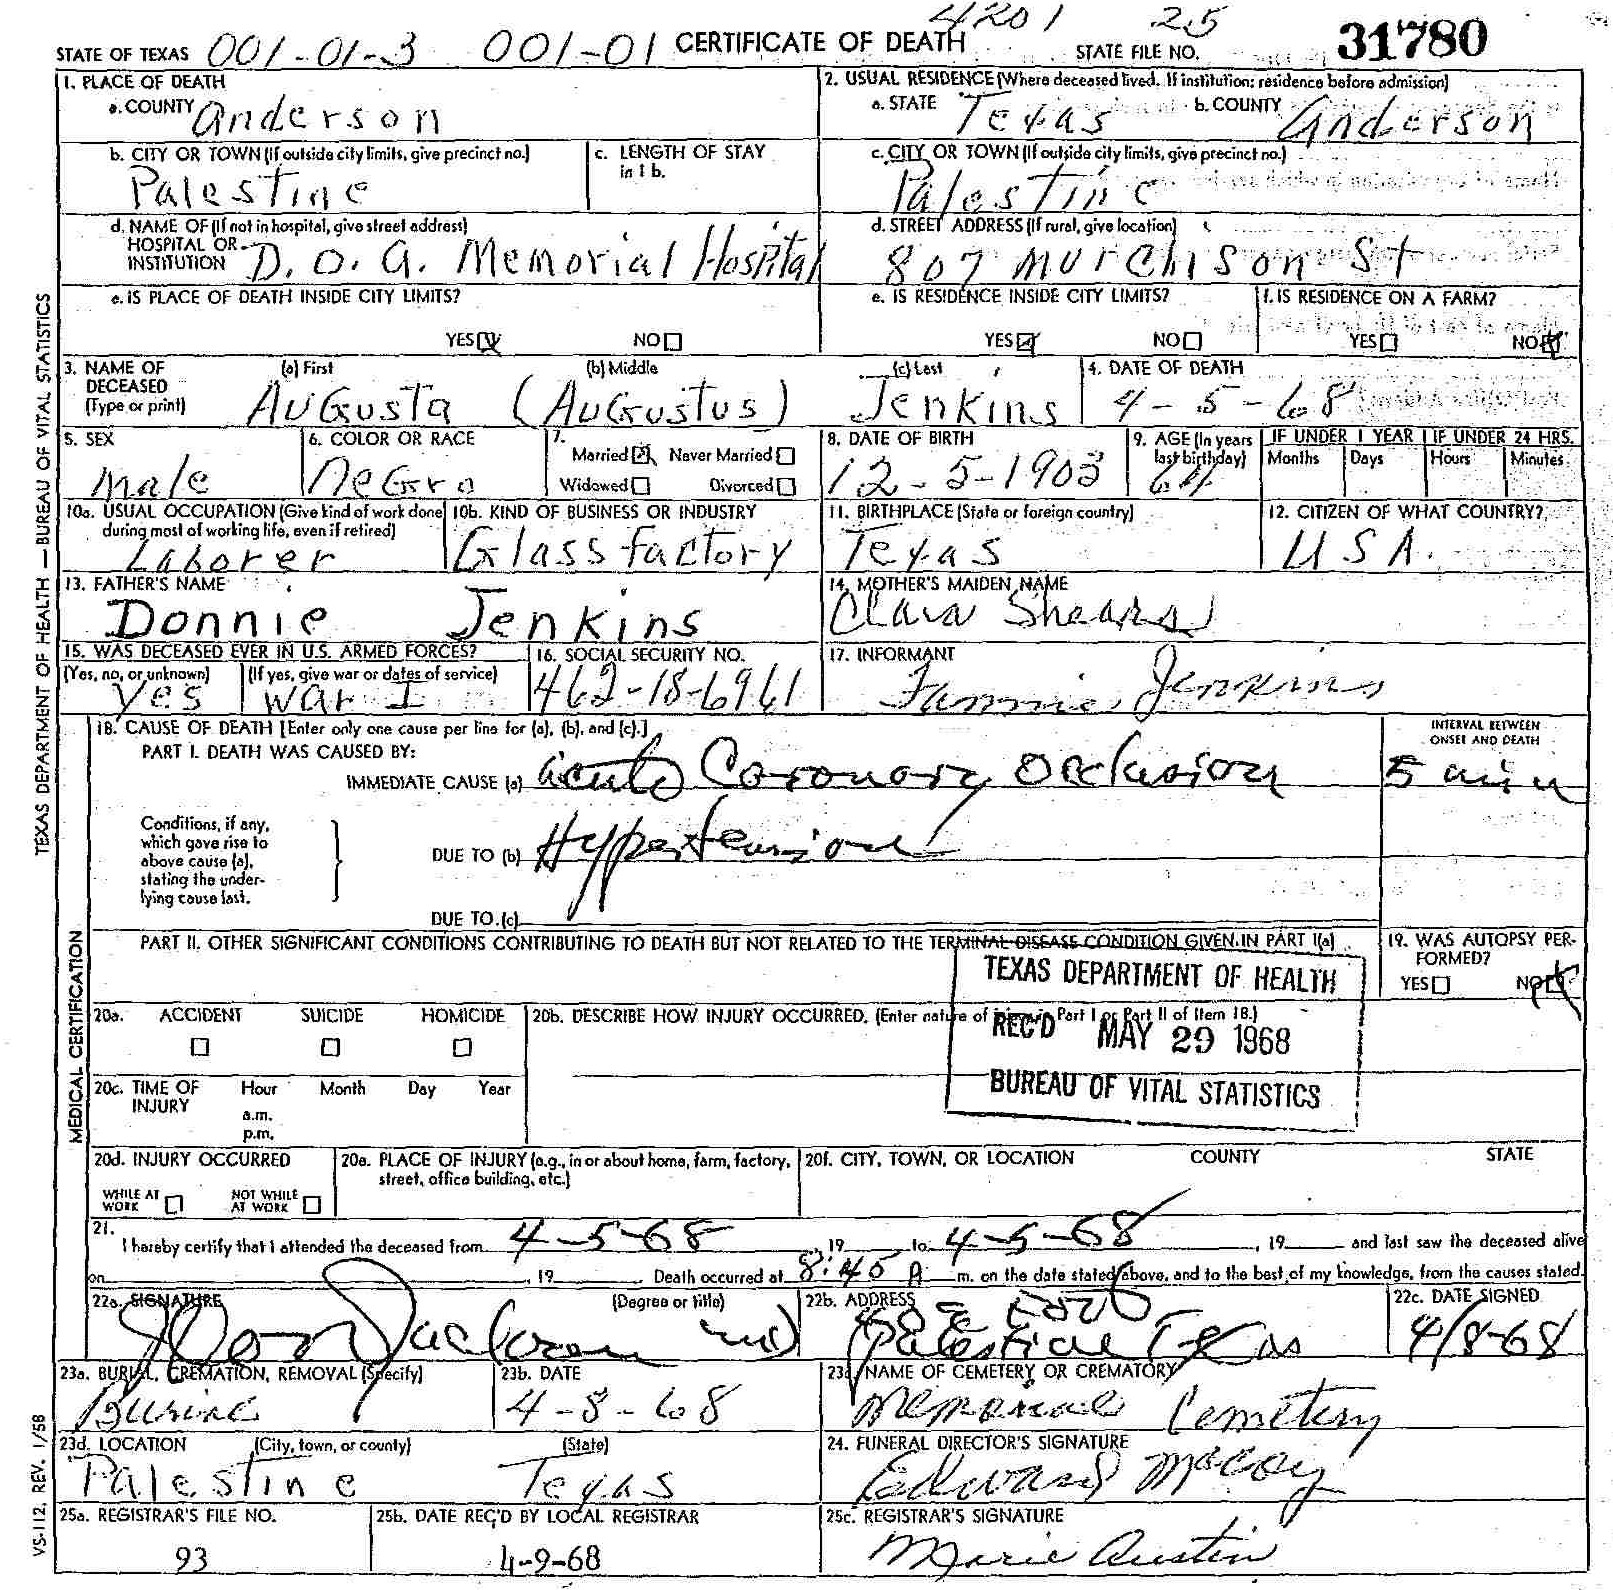 4201 25
STATE OF TEXAS 001-01-3 001-01 CERTIFICATE OF DEATH STATE FILE NO. 31780
1. PLACE OF DEATH
a. COUNTY Anderson
2. USUAL RESIDENCE (Where deceased lived. If institution: residence before admission)
a. STATE Texas b. COUNTY Anderson
b. CITY OR TOWN (If outside city limits, give precinct no.) Palestine
c. LENGTH OF STAY in 1 b.
c. CITY OR TOWN (If outside city limits, give precinct no.) Palestine
d. NAME OF (If not in hospital, give street address)
HOSPITAL OR INSTITUTION D.O.A. Memorial Hospital
d. STREET ADDRESS (If rural, give location)
807 Murchison St
e. IS PLACE OF DEATH INSIDE CITY LIMITS?
YES NO
e. IS RESIDENCE INSIDE CITY LIMITS?
YES NO
f. IS RESIDENCE ON A FARM?
YES NO
3. NAME OF DECEASED (Type or print)
(a) First (b) Middle (c) Last
Augusta (Augustus) Jenkins
4. DATE OF DEATH
4-5-68
5. SEX
Male
6. COLOR OR RACE
Negro
7.
Married Never Married
Widowed Divorced
8. DATE OF BIRTH
12-5-1903
9. AGE (In years last birthday)
64
IF UNDER 1 YEAR IF UNDER 24 HRS.
Months Days Hours Minutes
10a. USUAL OCCUPATION (Give kind of work done during most of working life, even if retired)
Laborer
10b. KIND OF BUSINESS OR INDUSTRY
Glass factory
11. BIRTHPLACE (State or foreign country)
Texas
12. CITIZEN OF WHAT COUNTRY?
USA.
13. FATHER'S NAME
Donnie Jenkins
14. MOTHER'S MAIDEN NAME
Clara Shears
15. WAS DECEASED EVER IN U.S. ARMED FORCES?
(Yes, no, or unknown) (If yes, give war or dates of service)
Yes War I
16. SOCIAL SECURITY NO.
462-18-6961
17. INFORMANT
Fannie Jenkins
18. CAUSE OF DEATH [Enter only one cause per line for (a), (b), and (c).]
PART I. DEATH WAS CAUSED BY:
IMMEDIATE CAUSE (a) acute Coronary Occlusion
INTERVAL BETWEEN ONSET AND DEATH
5 min
Conditions, if any, which gave rise to above cause (a), stating the under-lying cause last.
DUE TO (b) Hypertension
DUE TO (c)
PART II. OTHER SIGNIFICANT CONDITIONS CONTRIBUTING TO DEATH BUT NOT RELATED TO THE TERMINAL DISEASE CONDITION GIVEN IN PART I(a)
19. WAS AUTOPSY PER-FORMED?
YES NO
TEXAS DEPARTMENT OF HEALTH
REC'D MAY 29 1968
BUREAU OF VITAL STATISTICS
20a. ACCIDENT SUICIDE HOMICIDE
20b. DESCRIBE HOW INJURY OCCURRED. (Enter nature of injury in Part I or Part II of Item 18.)
20c. TIME OF INJURY Hour Month Day Year
a.m.
p.m.
20d. INJURY OCCURRED
WHILE AT WORK NOT WHILE AT WORK
20e. PLACE OF INJURY (e.g., in or about home, farm, factory, street, office building, etc.)
20f. CITY, TOWN, OR LOCATION COUNTY STATE
21.
I hereby certify that I attended the deceased from 4-5-68, 19 to 4-5-68, 19 and last saw the deceased alive
on , 19 . Death occurred at 8:45 P m. on the date stated above, and to the best of my knowledge, from the causes stated.
22a. SIGNATURE (Degree or title)
Jackson MD
22b. ADDRESS
Palestine Texas
22c. DATE SIGNED
4/8-68
23a. BURIAL, CREMATION, REMOVAL (Specify)
Burial
23b. DATE
4-8-68
23c. NAME OF CEMETERY OR CREMATORY
Memorial Cemetery
23d. LOCATION (City, town, or county) (State)
Palestine Texas
24. FUNERAL DIRECTOR'S SIGNATURE
Edward McCoy
25a. REGISTRAR'S FILE NO.
93
25b. DATE REC'D BY LOCAL REGISTRAR
4-9-68
25c. REGISTRAR'S SIGNATURE
Marie Austin
TEXAS DEPARTMENT OF HEALTH — BUREAU OF VITAL STATISTICS
MEDICAL CERTIFICATION
VS-112, REV. 1/58